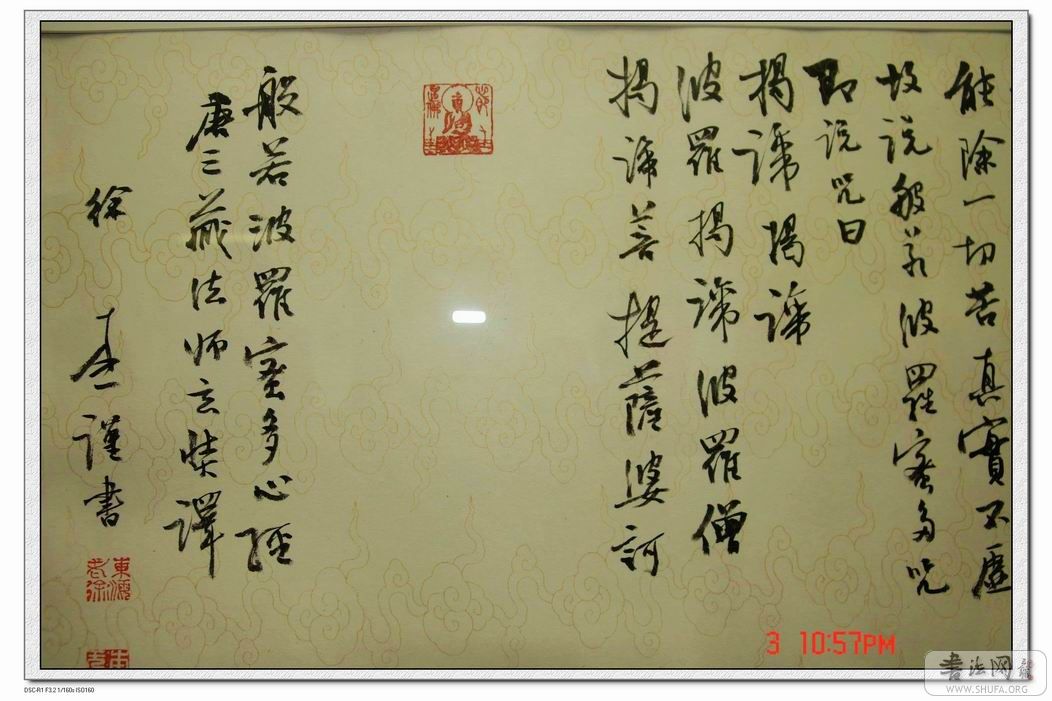 能除一切苦真實不虛
故说般若波羅蜜多咒
即说咒曰
揭諦揭諦
波羅揭諦波羅僧
揭諦菩提薩婆訶
般若波羅蜜多心經
唐三藏法师玄奘譯
徐 謹書
3 10:57PM
書法网
WWW.SHUFA.ORG
DSC-R1 F3.2 1/160s ISO160